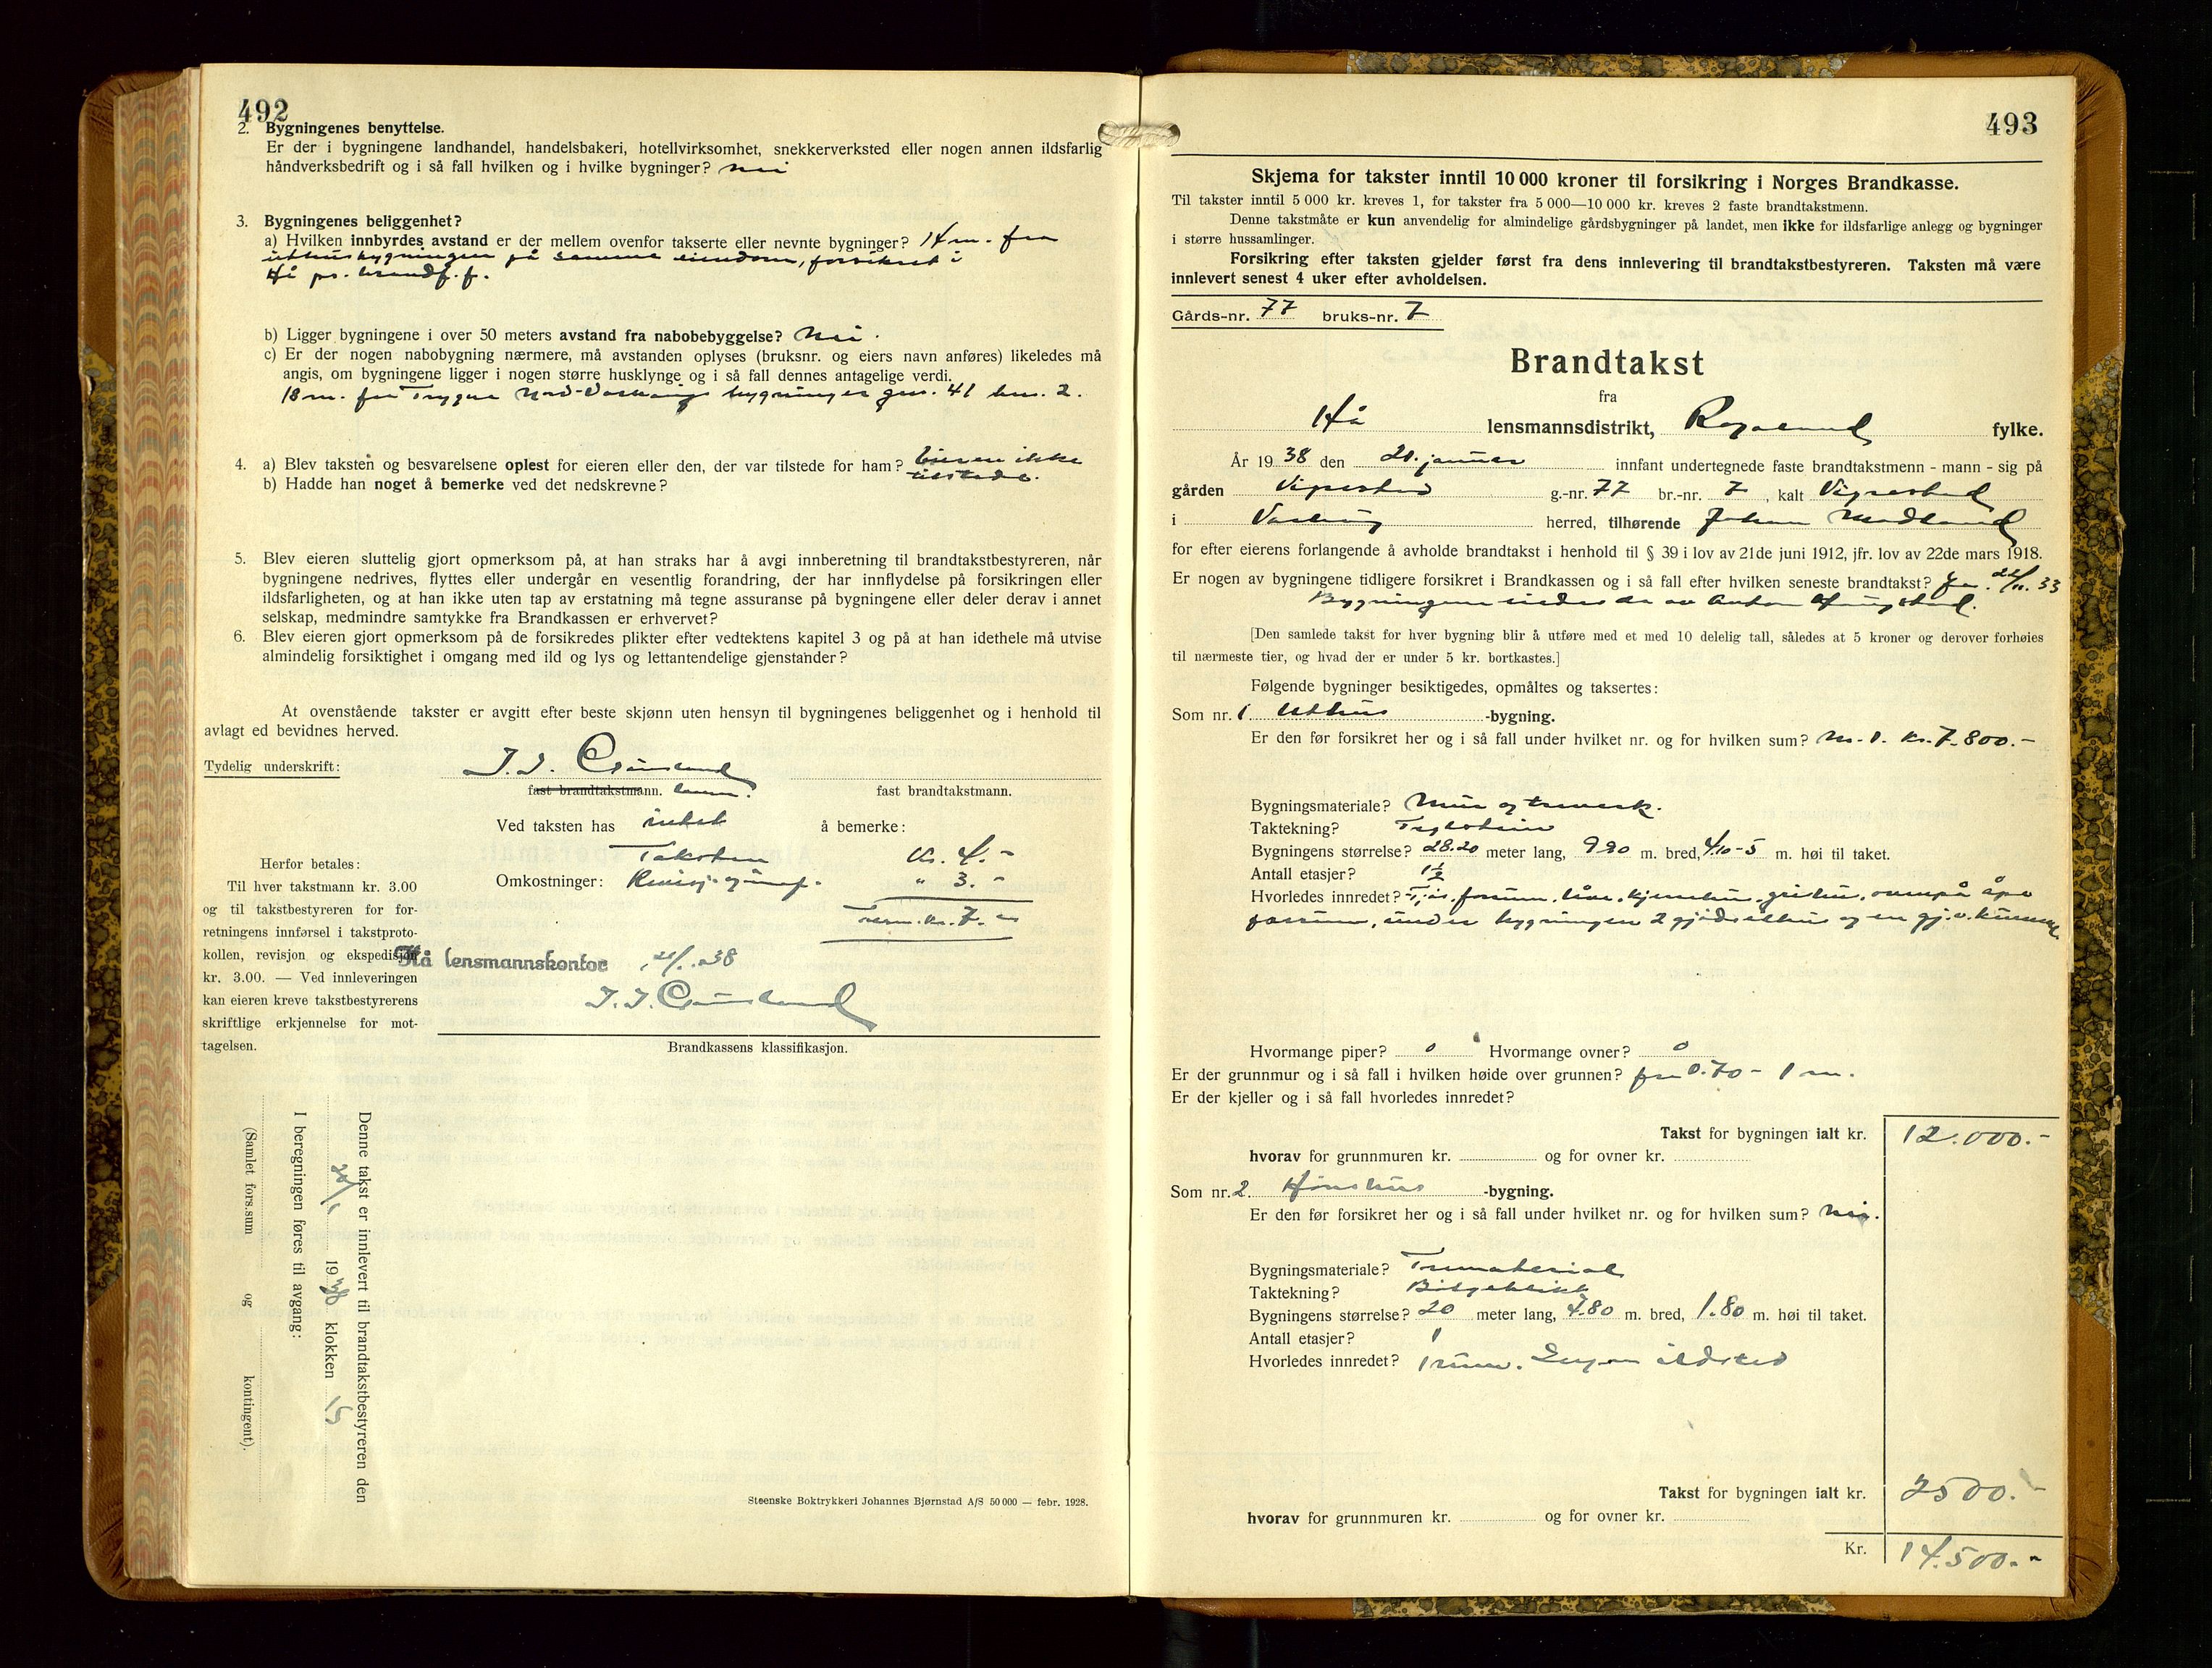 492
2. Bygningenes benyttelse.
Er der i bygningene landhandel, handelsbakeri, hotellvirksomhet, snekkerverksted eller nogen annen ildsfarlig
håndverksbedrift og i så fall hvilken og i hvilke bygninger? nei
3. Bygningenes beliggenhet?
a) Hvilken innbyrdes avstand er der mellem ovenfor takserte eller nevnte bygninger? 14 m. fra
uthusbygningen på samme eiendom, forsikret i
Hå pr. brandf. f.
b) Ligger bygningene i over 50 meters avstand fra nabobebyggelse? Nei.
c) Er der nogen nabobygning nærmere, må avstanden oplyses (bruksnr. og eiers navn anføres) likeledes må
angis, om bygningene ligger i nogen større husklynge og i så fall dennes antagelige verdi.
18 m. fra Trygve bygninger gnr. 41 bnr. 2.
4. a) Blev taksten og besvarelsene oplest for eieren eller den, der var tilstede for ham? Eieren ikke
tilstede.
b) Hadde han noget å bemerke ved det nedskrevne?
5. Blev eieren sluttelig gjort opmerksom på, at han straks har å avgi innberetning til brandtakstbestyreren, når
bygningene nedrives, flyttes eller undergår en vesentlig forandring, der har innflydelse på forsikringen eller
ildsfarligheten, og at han ikke uten tap av erstatning må tegne assuranse på bygningene eller deler derav i annet
selskap, medmindre samtykke fra Brandkassen er erhvervet?
6. Blev eieren gjort opmerksom på de forsikredes plikter efter vedtektens kapitel 3 og på at han idethele må utvise
almindelig forsiktighet i omgang med ild og lys og lettantendelige gjenstander?
At ovenstående takster er avgitt efter beste skjønn uten hensyn til bygningenes beliggenhet og i henhold til
avlagt ed bevidnes herved.
Tydelig underskrift:
fast brandtakstmann. lensm. fast brandtakstmann.
Ved taksten has intet å bemerke:
Taksten Kr. 4.-
Omkostninger: " 3.-
Kr. 7.-
Herfor betales:
Til hver takstmann kr. 3.00
og til takstbestyreren for for-
retningens innførsel i takstproto-
kollen, revisjon og ekspedisjon
kr. 3.00. — Ved innleveringen
kan eieren kreve takstbestyrerens
skriftlige erkjennelse for mot-
tagelsen.
Hå lensmannskontor, 38
Brandkassens klassifikasjon.
Denne takst er innlevert til brandtakstbestyreren den
1938 klokken 15
I beregningen føres til avgang:
(Samlet fors.sum og kontingent).
Steenske Boktrykkeri Johannes Bjørnstad A/S 50 000 — febr. 1928.
493
Skjema for takster inntil 10 000 kroner til forsikring i Norges Brandkasse.
Til takster inntil 5 000 kr. kreves 1, for takster fra 5 000—10 000 kr. kreves 2 faste brandtakstmenn.
Denne takstmåte er kun anvendelig for almindelige gårdsbygninger på landet, men ikke for ildsfarlige anlegg og bygninger
i større hussamlinger.
Forsikring efter taksten gjelder først fra dens innlevering til brandtakstbestyreren. Taksten må være
innlevert senest 4 uker efter avholdelsen.
Gårds-nr. 77 bruks-nr. 7
Brandtakst
fra
Hå lensmannsdistrikt, Rogaland fylke.
År 1938 den 20. januar innfant undertegnede faste brandtakstmenn - mann - sig på
gården Vigrestad g.-nr. 77 br.-nr. 7, kalt Vigrestad
i Varhaug herred, tilhørende Johan Madland
for efter eierens forlangende å avholde brandtakst i henhold til § 39 i lov av 21de juni 1912, jfr. lov av 22de mars 1918.
Er nogen av bygningene tidligere forsikret i Brandkassen og i så fall efter hvilken seneste brandtakst? Ja. 22/11.33
Bygningene eiedes da av Anton
[Den samlede takst for hver bygning blir å utføre med et med 10 delelig tall, således at 5 kroner og derover forhøies
til nærmeste tier, og hvad der er under 5 kr. bortkastes.]
Følgende bygninger besiktigedes, opmåltes og taksertes:
Som nr. 1 Uthus -bygning.
Er den før forsikret her og i så fall under hvilket nr. og for hvilken sum? Nr. 1. Kr. 7.800.-
Bygningsmateriale? Mur og treverk.
Taktekning? Teglstein
Bygningens størrelse? 28.20 meter lang, 9.20 m. bred, 4.10-5 m. høi til taket.
Antall etasjer? 1½
Hvorledes innredet? forrum, låve, grishus, ovenpå åpe
forrum, under bygningen 2 og en gj.v.kumme
Hvormange piper? 0 Hvormange ovner? 0
Er der grunnmur og i så fall i hvilken høide over grunnen? fra 0.70 - 1 m.
Er der kjeller og i så fall hvorledes innredet?
Takst for bygningen ialt kr. 12.000.-
hvorav for grunnmuren kr. og for ovner kr.
Som nr. 2. Hønshus -bygning.
Er den før forsikret her og i så fall under hvilket nr. og for hvilken sum? Nei.
Bygningsmateriale? Tremateriale
Taktekning? Bølgeblikk
Bygningens størrelse? 20 meter lang, 4.80 m. bred, 1.80 m. høi til taket.
Antall etasjer? 1
Hvorledes innredet? 1 rum. Ingen ildsted
Takst for bygningen ialt kr. 2500.-
hvorav for grunnmuren kr. og for ovner kr.
Kr. 14.500.-